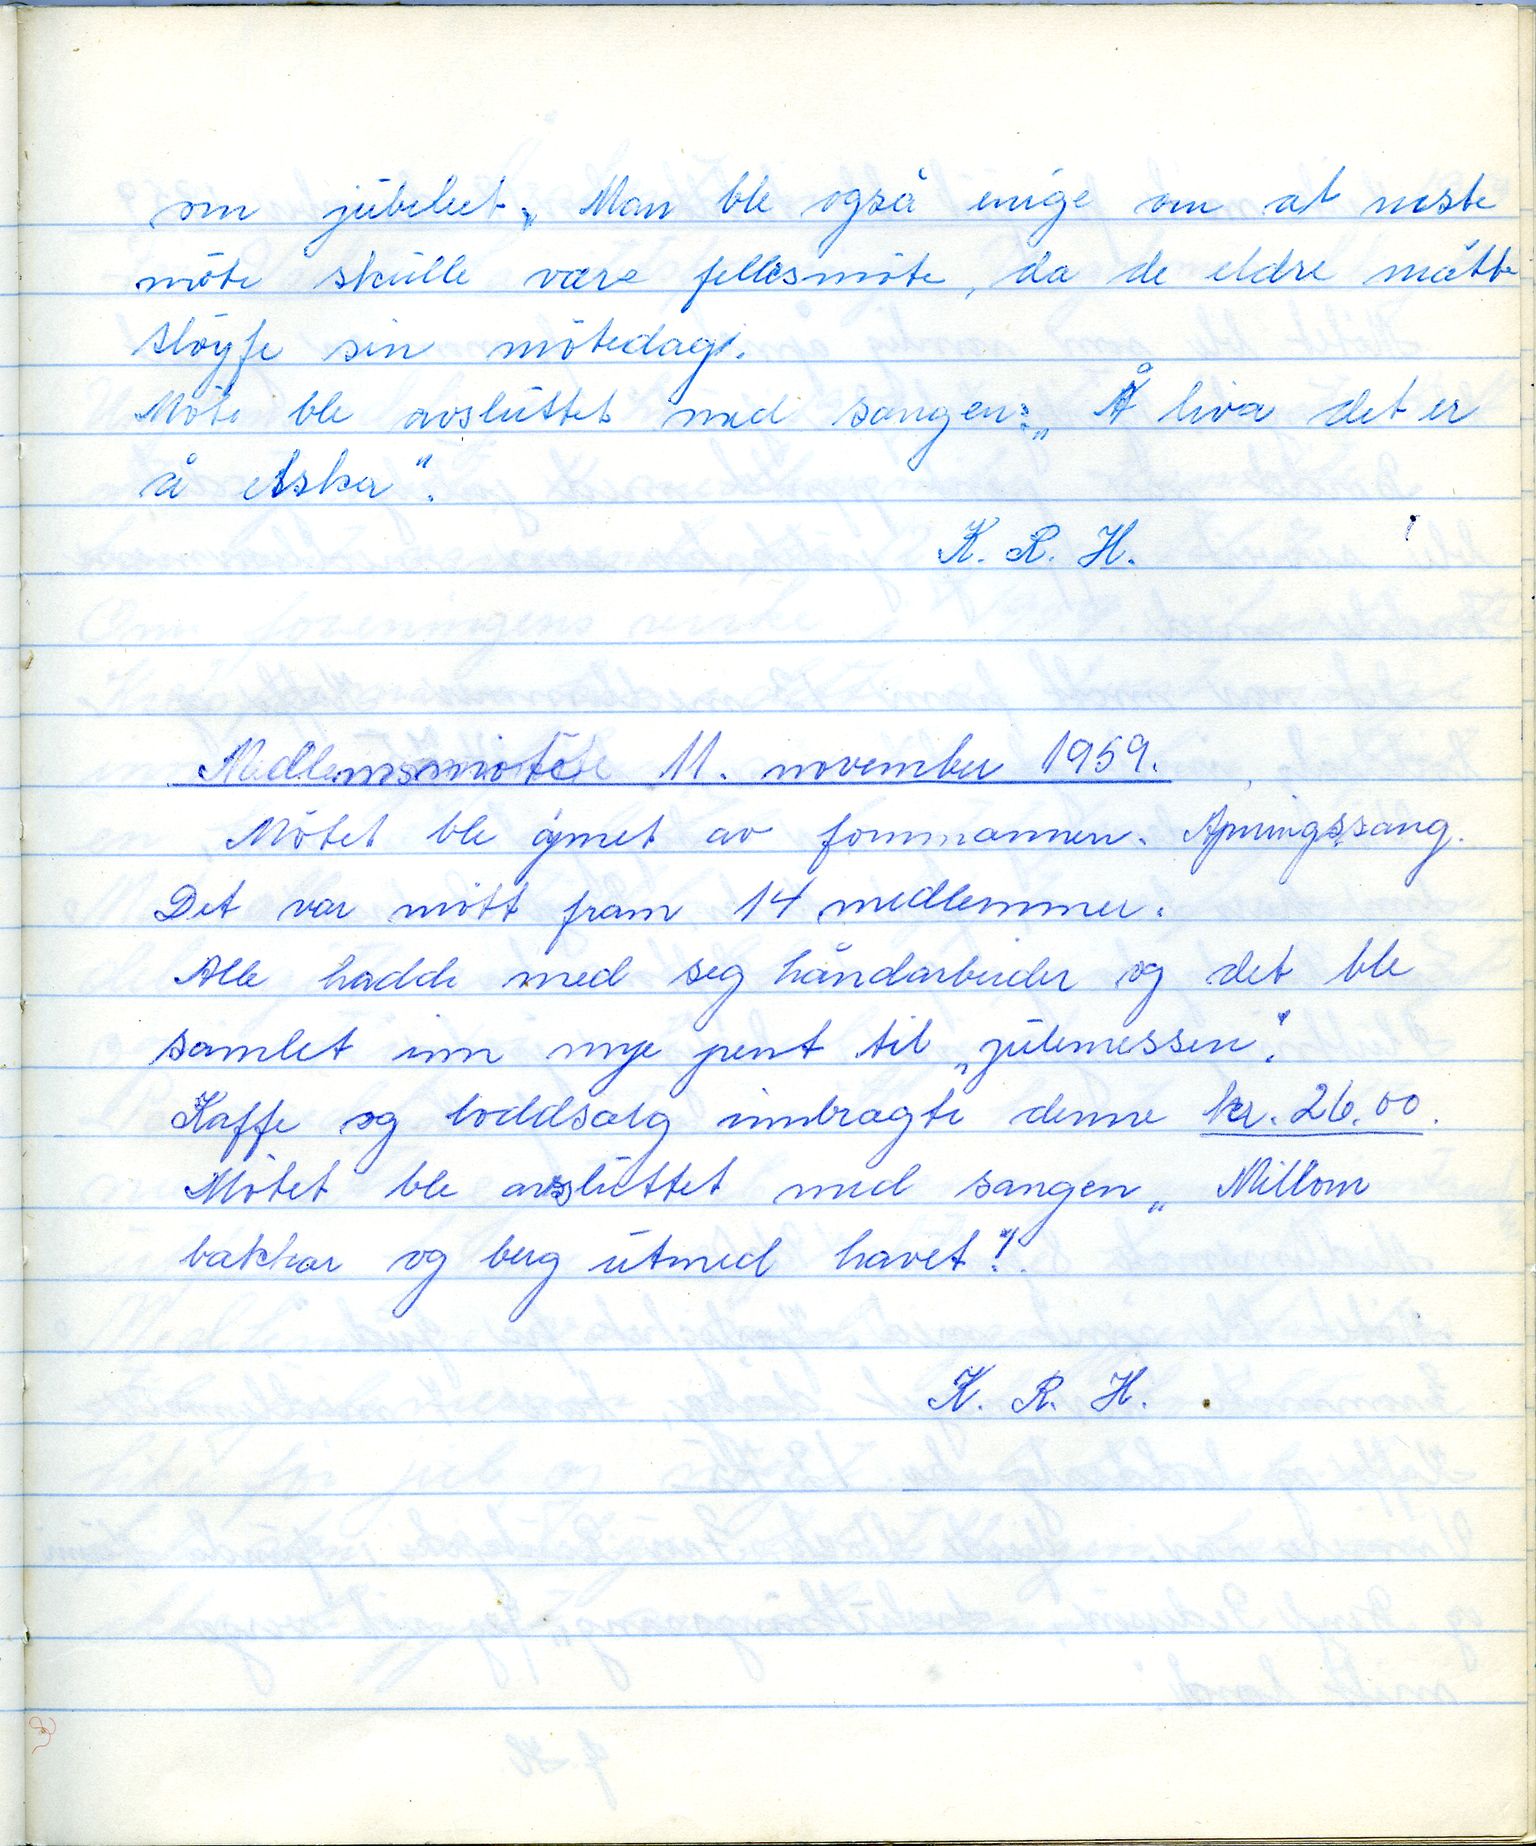 om jubileet. Man ble også enige om at neste
möte skulle være fellesmöte, da de eldre måtte
slöyfe sin mötedag.
Möte ble avsluttet med sangen: „Å hva det er
å elsker".
K. R. H.
Medlemsmöte 11. november 1959.
Mötet ble åpnet av formmannen. Åpningssang.
Det var mött fram 14 medlemmer.
Alle hadde med seg håndarbeider og det ble
samlet inn mye pent til „julemessen".
Kaffe og loddsalg innbragte denne kr. 26.00.
Mötet ble avsluttet med sangen „Millom
bakkar og berg utmed havet".
K. R. H.